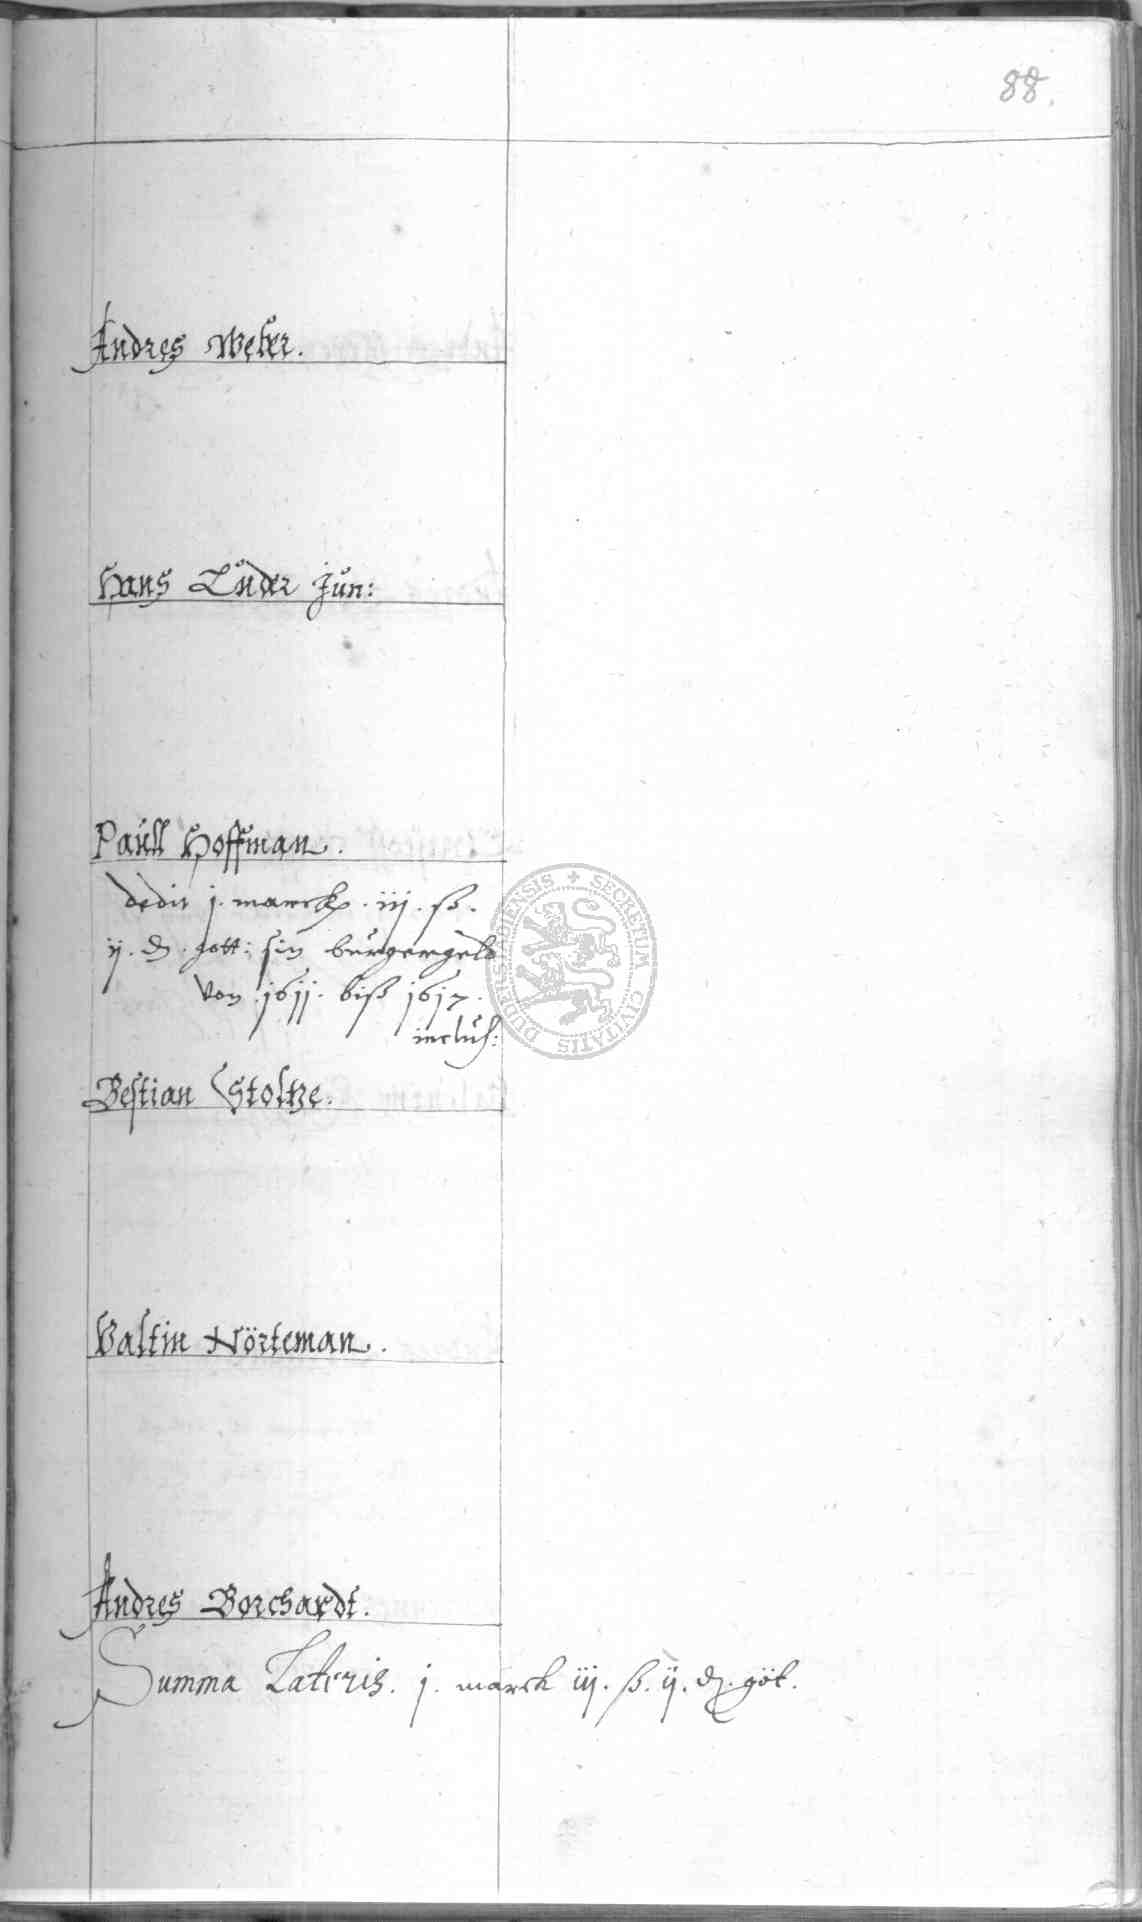 88.
Andres Weber.
Hans Lüder Jün:
Paull Hoffman.
dedit j. marck. iij. ß.
ij. d. gott: sin bürgergeld
von 1611. biß 1617.
inclus:
Bestian Stoltze.
Valtin Nörteman.
Andres Borchardt.
Summa Lateris. j. marck iij. ß. ij. d. göt.
SECRETUM CIVITATIS DUDERSTADIENSIS